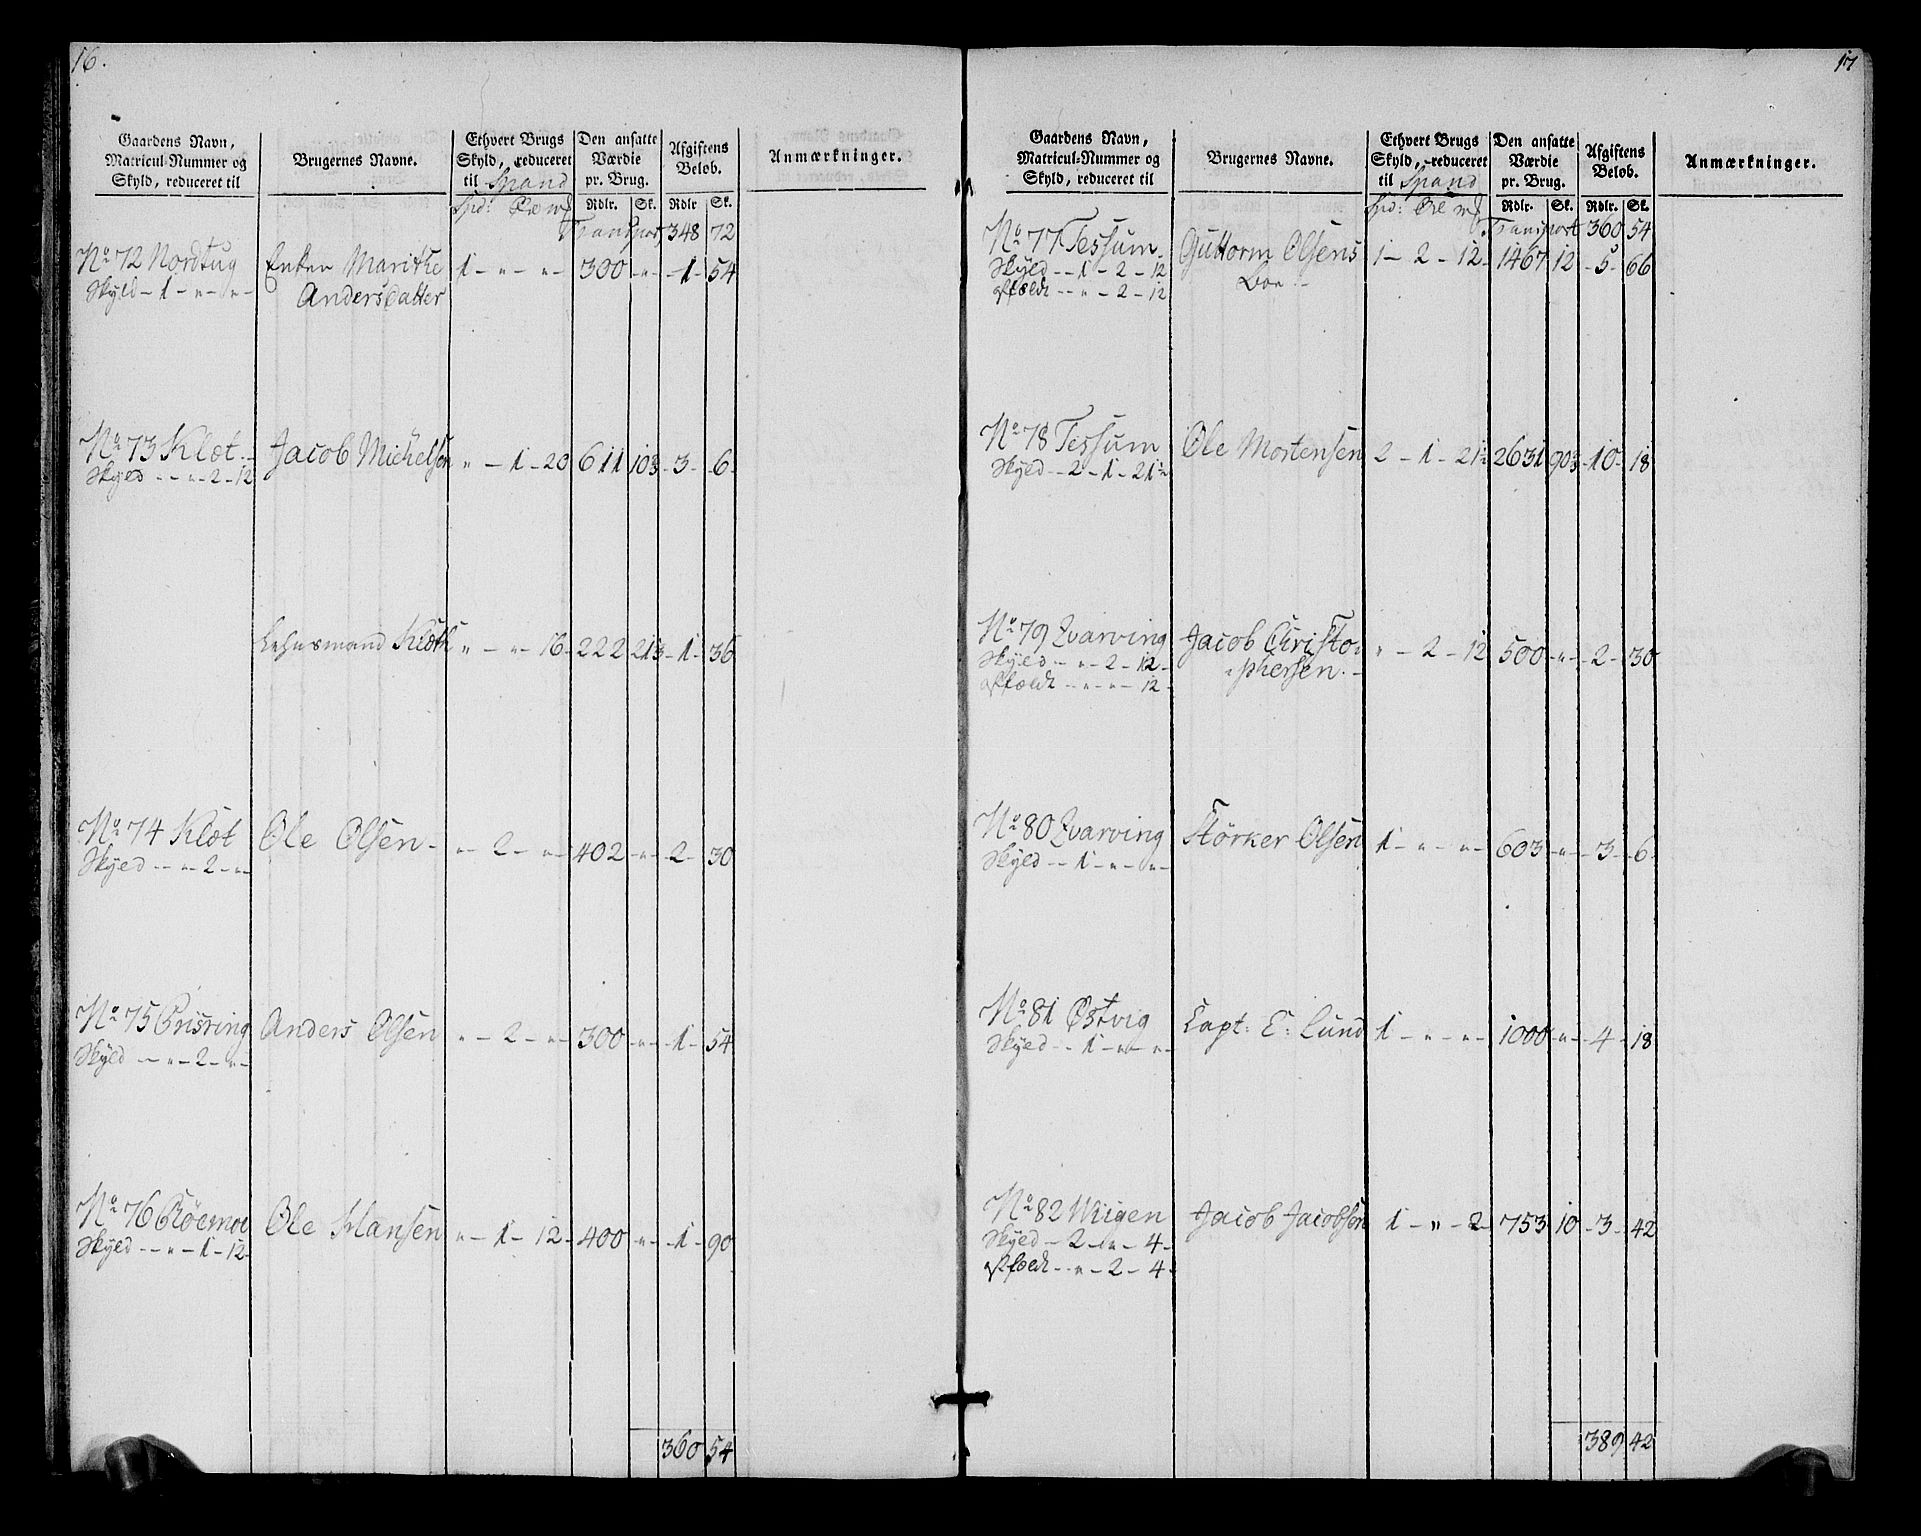 16.
Gaardens Navn, Matricul-Nummer og Skyld, reduceret til
Brugernes Navne.
Ethvert Brugs Skyld, reduceret til Spand
Den ansatte Værdie pr. Brug.
Afgiftens Beløb.
Anmærkninger.
Rdlr. Sk. Rdlr Sk.
Transport 348 72
No 72 Nordtug Enken Marithe 1 - " - " - 300 - " - 1 - 54
Skyld - 1 - " - " - Andersdatter
No 73 Klæt Jacob Michelsen " - 1 - 20 611 103 - 3 - 6 -
Skyld - - " - 2 - 12
Lehnsmand Klæth " - " - 16 - 222 213 - 1 - 36
No 74 Klæt Ole Olsen - " - 2 - " - 402 - " - 2 - 30
Skyld - - " - 2 - " -
No 75 Brisring Anders Olsen " - 2 - " - 300 - " - 1 - 54
Skyld - - " - 2 - " -
No 76 Röemoe Ole Hansen " - 1 - 12 - 400 - " - 1 - 90
Skyld - - " - 1 - 12 -
360 54
17
Gaardens Navn, Matricul-Nummer og Skyld, reduceret til
Brugernes Navne.
Ethvert Brugs Skyld, reduceret til Spand
Den ansatte Værdie pr. Brug.
Afgiftens Beløb.
Anmærkninger.
Rdlr. Sk. Rdlr. Sk.
Transport 360 54
No 77 Tessum Guttorm Olsens 1 - 2 - 12 - 1467 12 - 5 - 66
Skyld - - 1 - 2 - 12 Boe
affældt - - " - 2 - 12
No 78 Tessum Ole Mortensen 2 - 1 - 21½ 2631 903 - 10 - 18
Skyld - - 2 - 1 - 21½
No 79 Qvarving Jacob Christo- " - 2 - 12 500 - " - 2 - 30
Skyld - - " - 2 - 12 - phersen. -
affældt - - " - " - 12 -
No 80 Qvarving Störker Olsen 1 - " - " - 603 - " - 3 - 6 -
Skyld - - 1 - " - " -
No 81 Østvig Capt: E: Lund 1 - " - " - 1000 - " - 4 - 18
Skyld - - 1 - " - " -
No 82 Wiigen Jacob Jacobsen 1 - " - 2 - 753 10 - 3 - 42
Skyld - 2 - " - 4 -
affældt - - " - 2 - 4 -
389 42